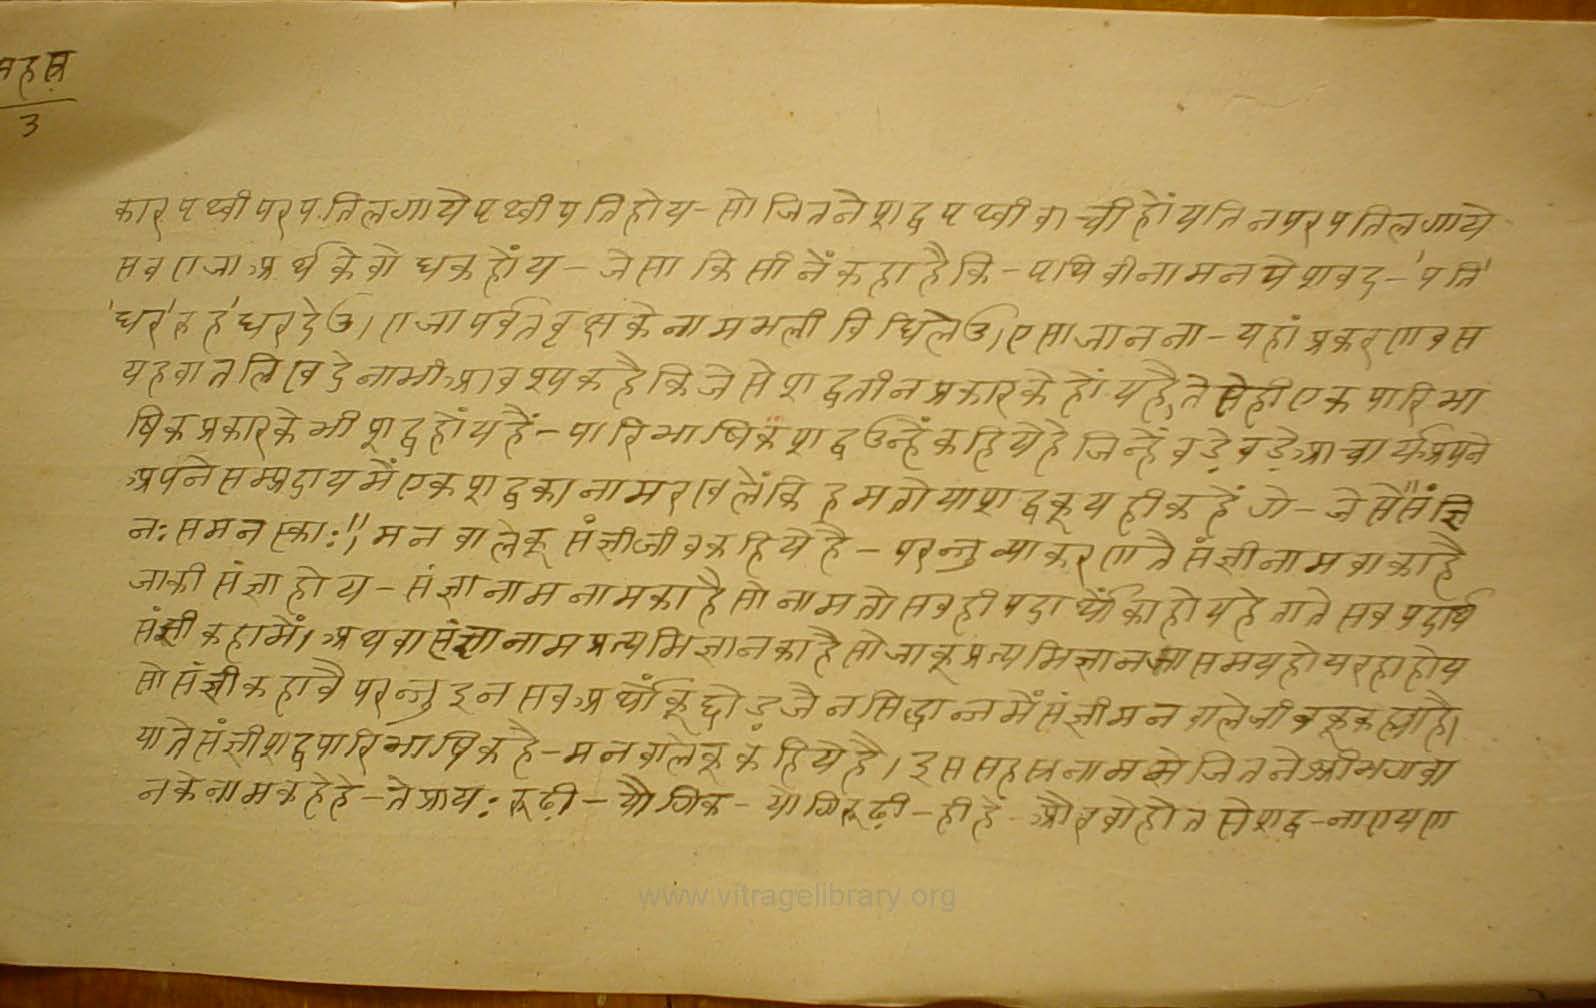 सहस्र
3
कार पथ्वी पर पति लगाये पथ्वीपति होय - सो जितने शब्द पथ्वी वाची होंय तिन पर पति लगाये
सब राजा अर्थ के बोधक होंय - जेसा किसी नें कहा है कि - पथिवी नामन पे शवद - 'पति'
'धर' रु हे 'धर देउ। राजा पर्वत वृक्ष के नाम भली विधि लेउ। एसा जानना - यहां प्रकरण वस
यह वात लिख देना भी आवश्यक है कि जेसे शब्द तीन प्रकार के होंय है, तेसे ही एक पारिभा
षिक प्रकार के भी शब्द होंय हैं - पारिभाषिक शब्द उन्हें कहिये हे जिन्हें वड़े वड़े आचार्य अपने
अपने सम्प्रदाय में एक शब्द का नाम रख लें कि हम तो या शब्द कू यही कहें गे - जेसे "संज्ञि
नः समनस्काः" मन वाले कू संज्ञी जीव कहिये है - परन्तु व्याकरण तै संज्ञी नाम वा का है
जाकी संज्ञा होय - संज्ञा नाम नाम का है सो नाम तो सब ही पदार्थों का होय हे ताते सब पदार्थ
संज्ञी कहामें। अथवा संज्ञा नाम प्रत्यभिज्ञान का है सो जाकू प्रत्यभिज्ञान जा समय होय रहा होय
सो संज्ञी कहावै परन्तु इन सब अर्थों कू छोड़ जैन सिद्धान्त में संज्ञी मन वाले जीव कू कह्या है।
याते संज्ञी शब्द पारिभाषिक है - मन वाले कू कहिये है। इस सहस्रनाम मे जितने श्री भगवा
न के नाम कहे हे - ते प्रायः रूढ़ी - यौगिक - योगिरूढ़ी - ही हे - और वोहोत से शब्द - नारायण
www.vitragelibrary.org